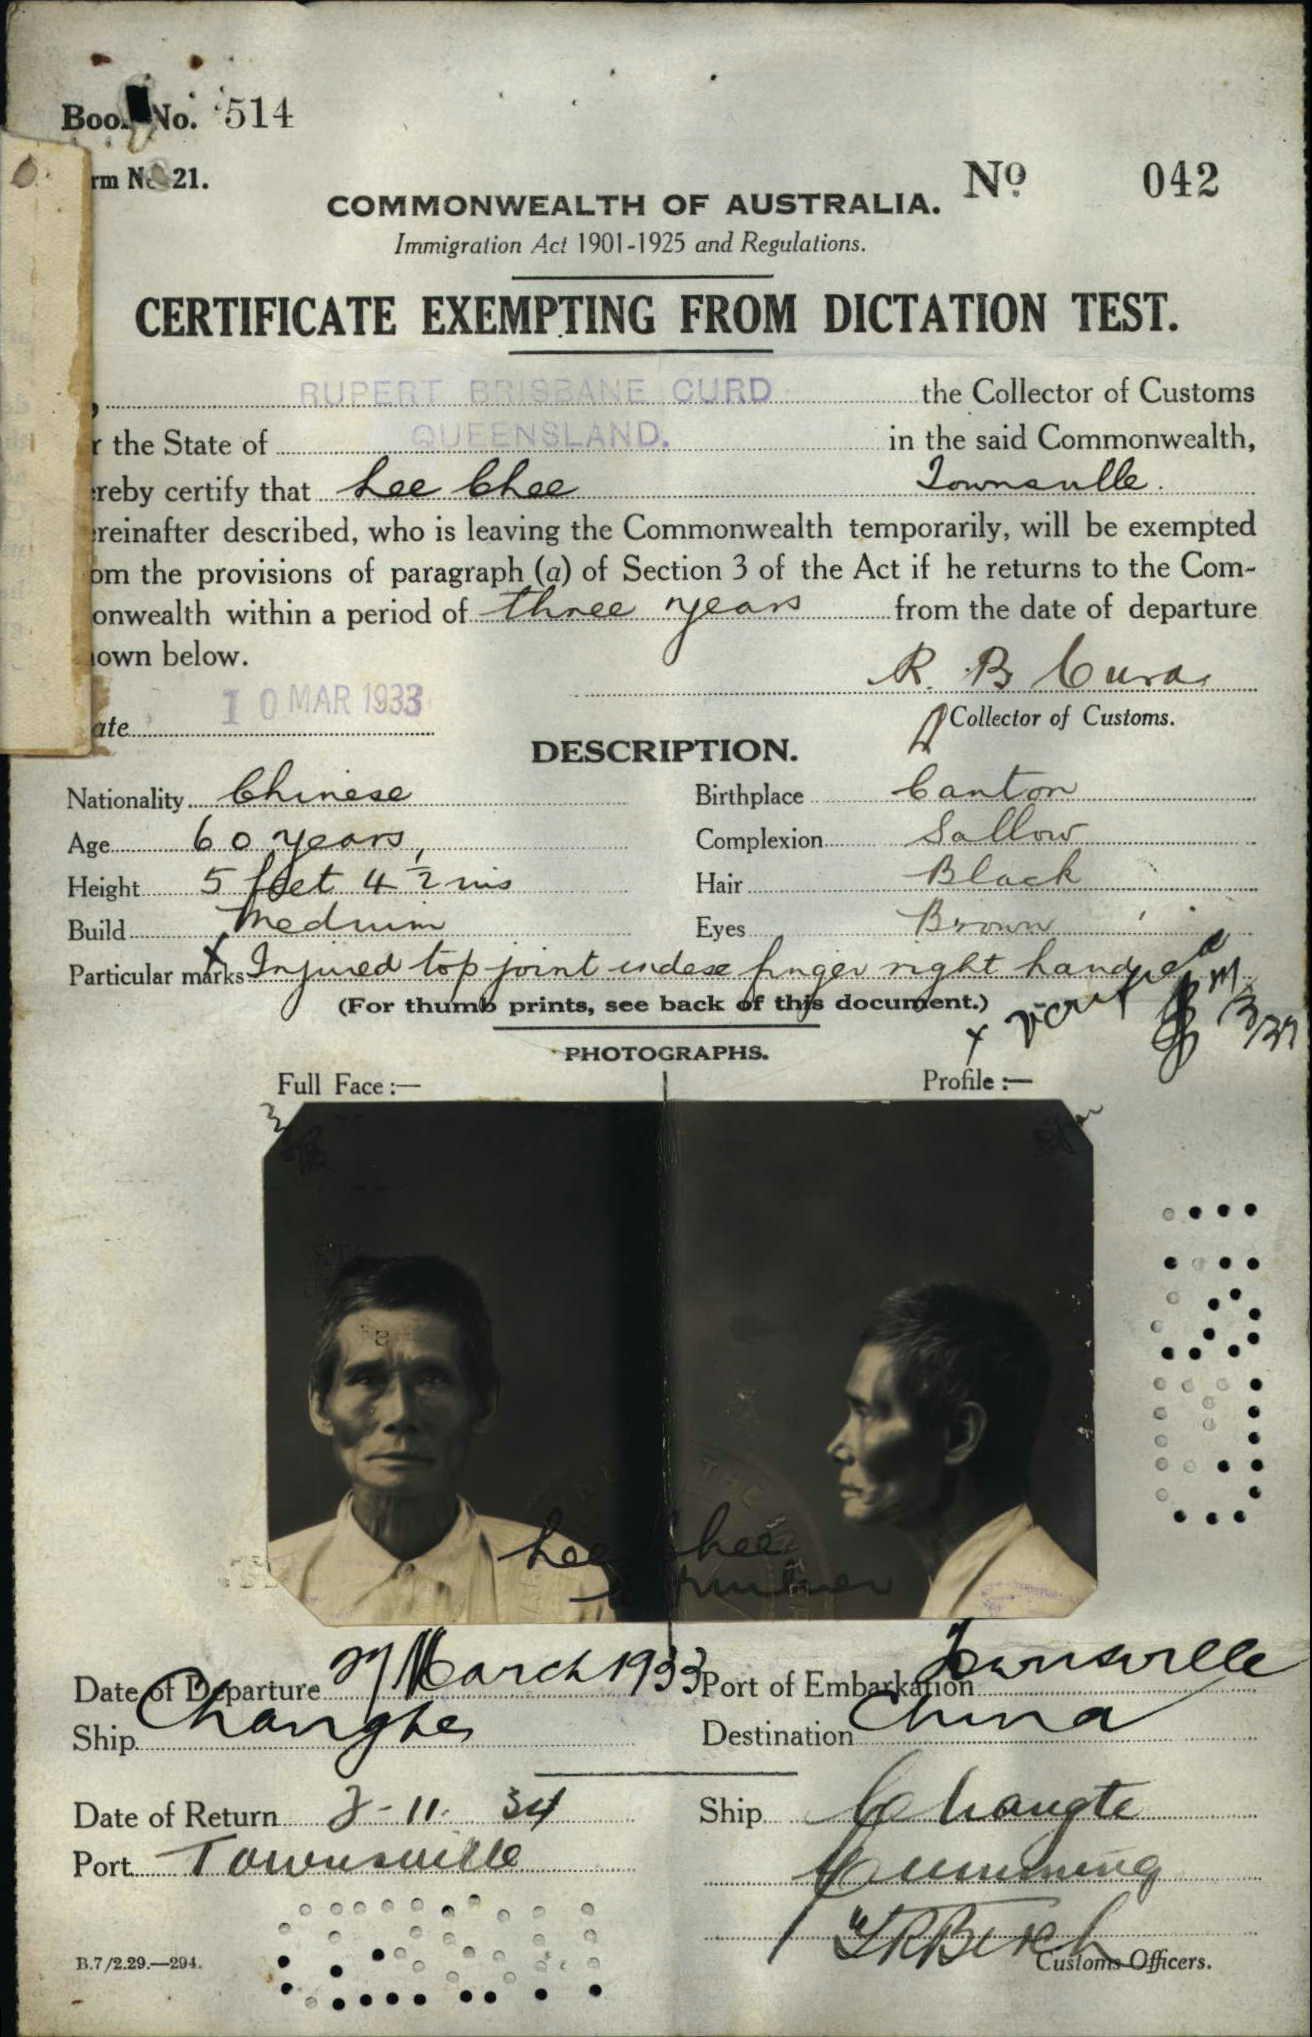 Book No. 514
rm No. 21.
No 042
COMMONWEALTH OF AUSTRALIA.
Immigration Act 1901-1925 and Regulations.
CERTIFICATE EXEMPTING FROM DICTATION TEST.
RUPERT BRISBANE CURD the Collector of Customs
r the State of QUEENSLAND. in the said Commonwealth,
ereby certify that Lee Chee Townsville.
ereinafter described, who is leaving the Commonwealth temporarily, will be exempted
om the provisions of paragraph (a) of Section 3 of the Act if he returns to the Com-
onwealth within a period of three years from the date of departure
own below.
R. B Curd
ate 10 MAR 1933
Collector of Customs.
DESCRIPTION.
Nationality Chinese Birthplace Canton
Age 60 years, Complexion Sallow
Height 5 feet 4 ½ ins Hair Black
Build Medium Eyes Brown
Particular marks x Injured top joint index finger right hand
(For thumb prints, see back of this document.)
x verified
PHOTOGRAPHS.
Full Face:— Profile:—
Lee Chee
Date of Departure 27 March 1933 Port of Embarkation Townsville
Ship Changte Destination China
Date of Return 2-11-34 Ship Changte
Port Townsville Cumming
Customs Officers.
B.7/2.29.—294.